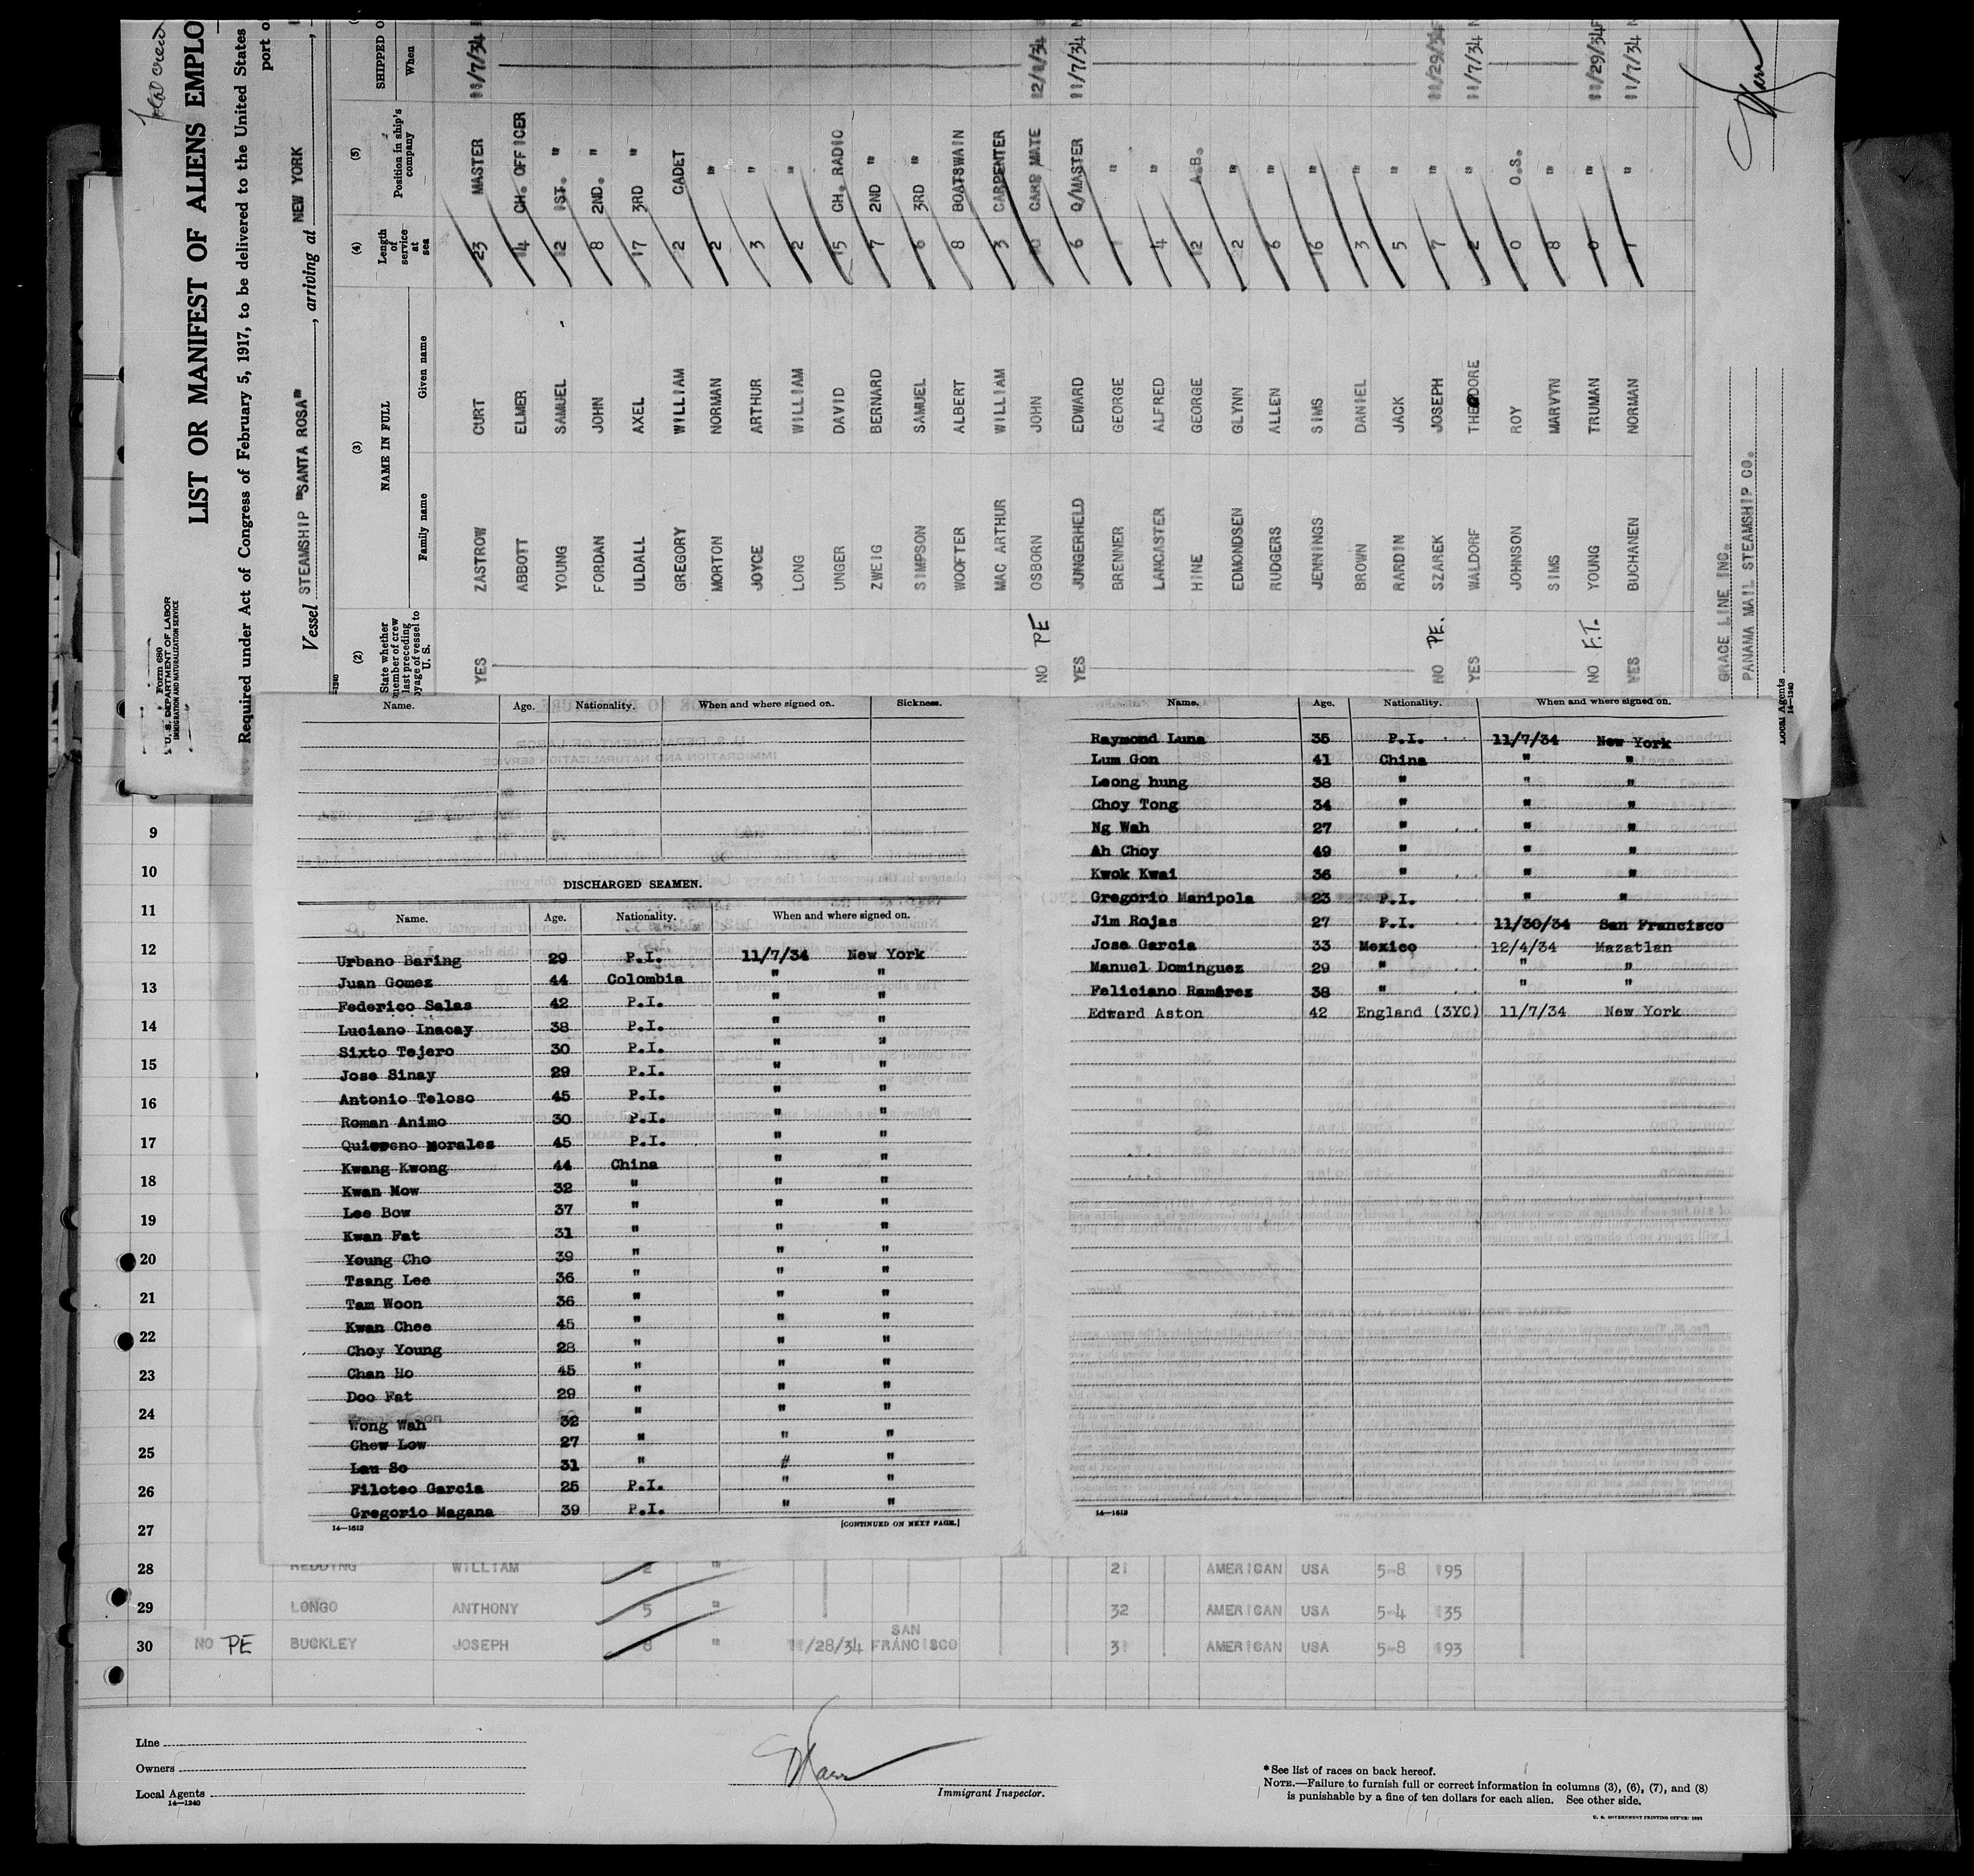 Total crew
LIST OR MANIFEST OF ALIENS EMPLO
Required under Act of Congress of February 5, 1917, to be delivered to the United States
port o
Form 680
U. S. DEPARTMENT OF LABOR
IMMIGRATION AND NATURALIZATION SERVICE
Vessel STEAMSHIP "SANTA ROSA", arriving at NEW YORK
(2) (3) (4) (5)
State whether member of crew last preceding voyage of vessel to U. S. NAME IN FULL Length of service at sea Position in ship's company SHIPPED O
Family name Given name When
YES ZASTROW CURT 23 MASTER 11/7/34
ABBOTT ELMER 14 CH. OFFICER
YOUNG SAMUEL 12 1ST. "
FORDAN JOHN 8 2ND. "
ULDALL AXEL 17 3RD "
GREGORY WILLIAM 2 CADET
MORTON NORMAN 2 "
JOYCE ARTHUR 3 "
LONG WILLIAM 2 "
UNGER DAVID 15 CH. RADIO
ZWEIG BERNARD 7 2ND "
SIMPSON SAMUEL 6 3RD "
WOOFTER ALBERT 8 BOATSWAIN
MAC ARTHUR WILLIAM 3 CARPENTER
NO PE OSBORN JOHN CARP MATE 12/1/34
YES JUNGERHELD EDWARD 6 Q/MASTER 11/7/34
BRENNER GEORGE 1 "
LANCASTER ALFRED 4 "
HINE GEORGE 12 A.B.
EDMONDSEN GLYNN 22 "
RUDGERS ALLEN 6 "
JENNINGS SIMS 16 "
BROWN DANIEL 3 "
RARDIN JACK 5 "
NO PE. SZAREK JOSEPH 7 " 11/29/34
YES WALDORF THEODORE 2 " 11/7/34
JOHNSON ROY 0 O.S.
SIMS MARVYN 8 "
NO F.T. YOUNG TRUMAN 0 " 11/29/34
YES BUCHANEN NORMAN 1 " 11/7/34
GRACE LINE INC.
PANAMA MAIL STEAMSHIP CO.
Local Agents
14—1240
Name. Age. Nationality. When and where signed on. Sickness.
DISCHARGED SEAMEN.
Name. Age. Nationality. When and where signed on.
Urbano Baring 29 P.I. 11/7/34 New York
Juan Gomez 44 Colombia " "
Federico Salas 42 P.I. " "
Luciano Inacay 38 P.I. " "
Sixto Tejero 30 P.I. " "
Jose Sinay 29 P.I. " "
Antonio Teloso 45 P.I. " "
Roman Animo 30 P.I. " "
Morales 45 P.I. " "
Kwang Kwong 44 China " "
Kwan Mow 32 " " "
Lee Bow 37 " " "
Kwan Fat 31 " " "
Young Cho 39 " " "
Tsang Lee 36 " " "
Tam Woon 36 " " "
Kwan Chee 45 " " "
Choy Young 28 " " "
Chan Ho 45 " " "
Doo Fat 29 " " "
Wong Wah 32 " " "
Chew Low 27 " " "
Lau So 31 " # "
Filoteo Garcia 25 P.I. " "
Gregorio Magana 39 P.I. " "
14—1612 [CONTINUED ON NEXT PAGE.]
Name. Age. Nationality. When and where signed on.
Raymond Luna 35 P.I. 11/7/34 New York
Lum Gon 41 China " "
Leong hung 38 " " "
Choy Tong 34 " " "
Ng Wah 27 " " "
Ah Choy 49 " " "
Kwok Kwai 36 " " "
Gregorio Manipola 23 P.I. " "
Jim Rojas 27 P.I. 11/30/34 San Francisco
Jose Garcia 33 Mexico 12/4/34 Mazatlan
Manuel Dominguez 29 " " "
Feliciano Ramirez 38 " " "
Edward Aston 42 England (3YC) 11/7/34 New York
14—1612
9
10
11
12
13
14
15
16
17
18
19
20
21
22
23
24
25
26
27
28 REDDYNG WILLIAM 2 " 21 AMERICAN USA 5-8 195
29 LONGO ANTHONY 5 " 32 AMERICAN USA 5-4 135
30 NO PE BUCKLEY JOSEPH 8 " 11/28/34 SAN FRANCISCO 31 AMERICAN USA 5-8 193
Line
Owners
Local Agents
14—1240
Immigrant Inspector.
*See list of races on back hereof.
NOTE.—Failure to furnish full or correct information in columns (3), (6), (7), and (8)
is punishable by a fine of ten dollars for each alien. See other side.